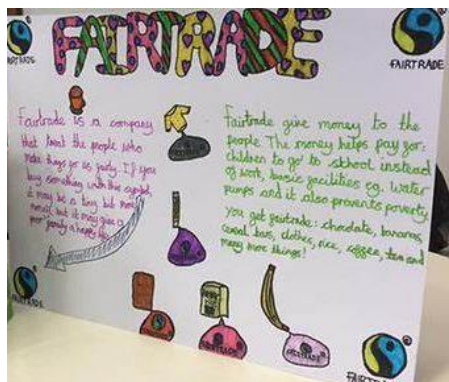 FAIRTRADE
FAIRTRADE
FAIRTRADE
Fairtrade is a company
that treat the people who
make things for us fairly. If you
buy something with this symbol,
it may be a tiny bit more
money but it may give a
poor family a happy life.
Fairtrade give money to the
people. The money helps pay for:
children to go to school instead
of work, basic facilities eg. water
pumps and it also prevents poverty.
You get fairtrade: chocolate, bananas,
cereal bars, clothes, rice, coffee, tea and
many more things!
FAIRTRADE
FAIRTRADE
FAIRTRADE